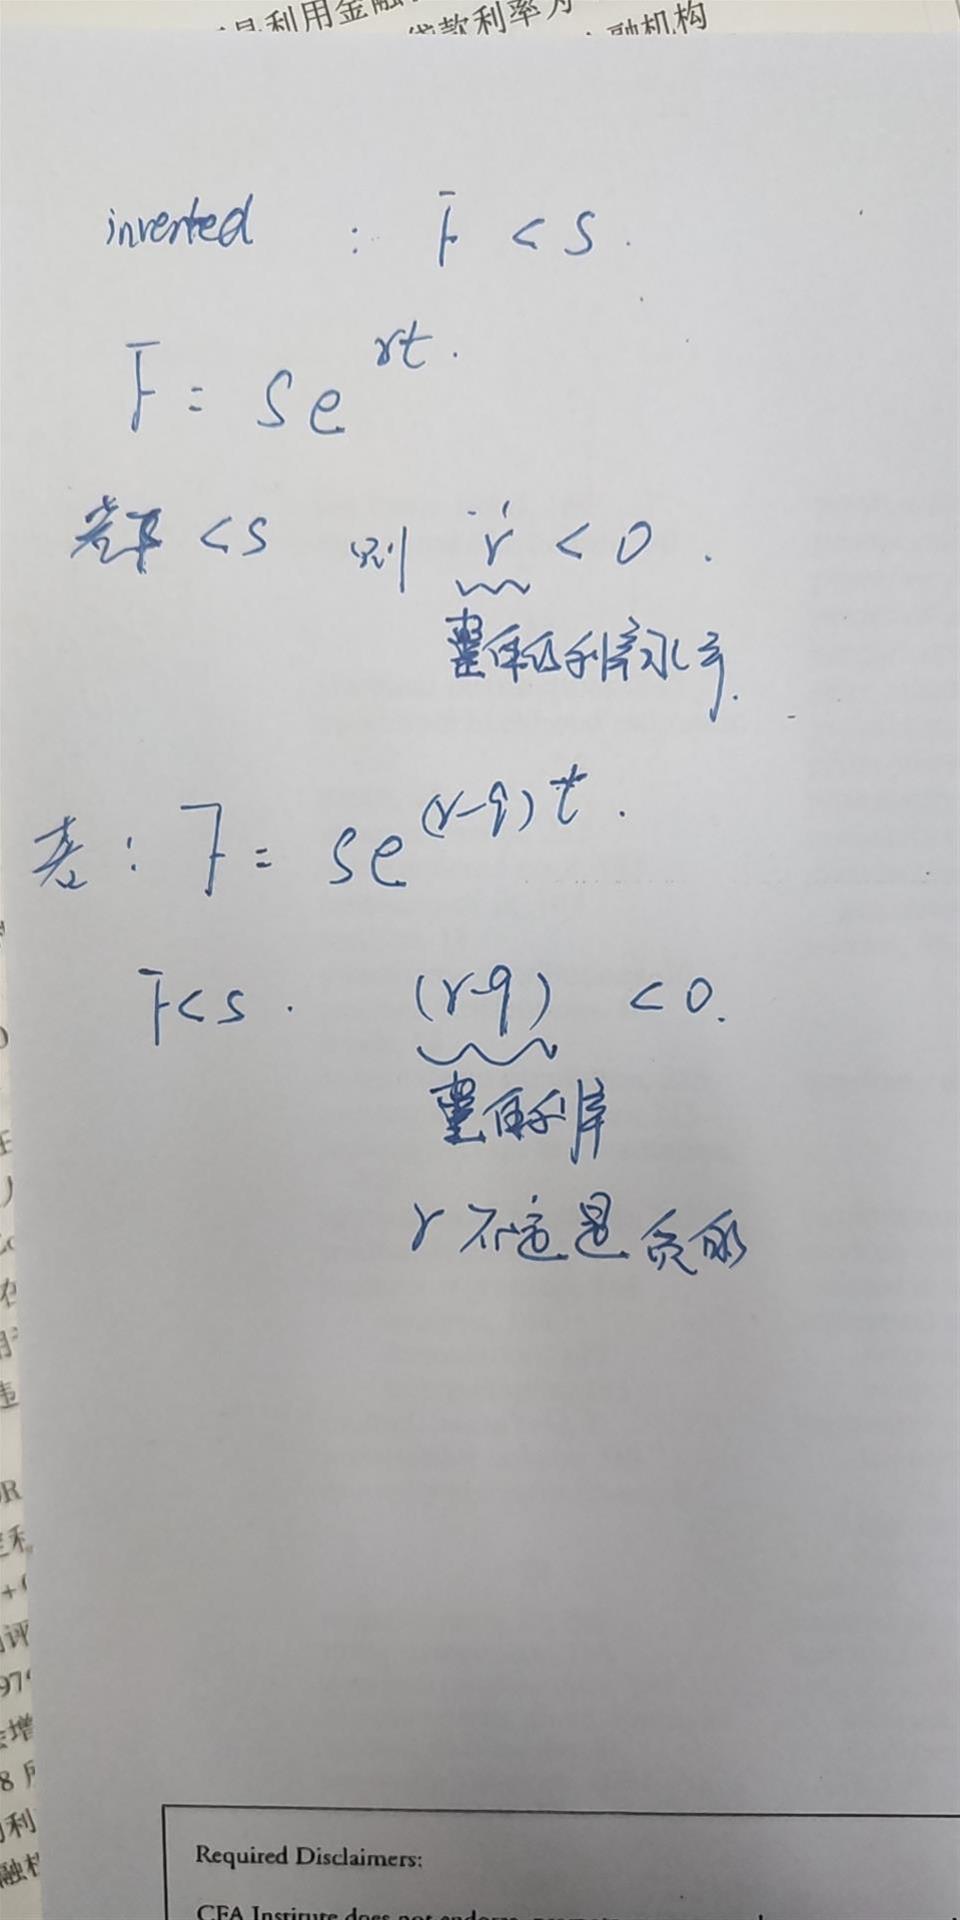 是利用金融
贷款利率为
融机构
inverted : F < S.
F = Se^{rt}.
若F < S 则 r < 0.
整体的利率水平.
若: F = Se^{(r-q)t}.
F < S. (r-q) < 0.
整体利率
r 不一定是负的
违
OR
定利
+(
评
97
增
8
利
融机
Required Disclaimers:
CFA Institute does not endorse,